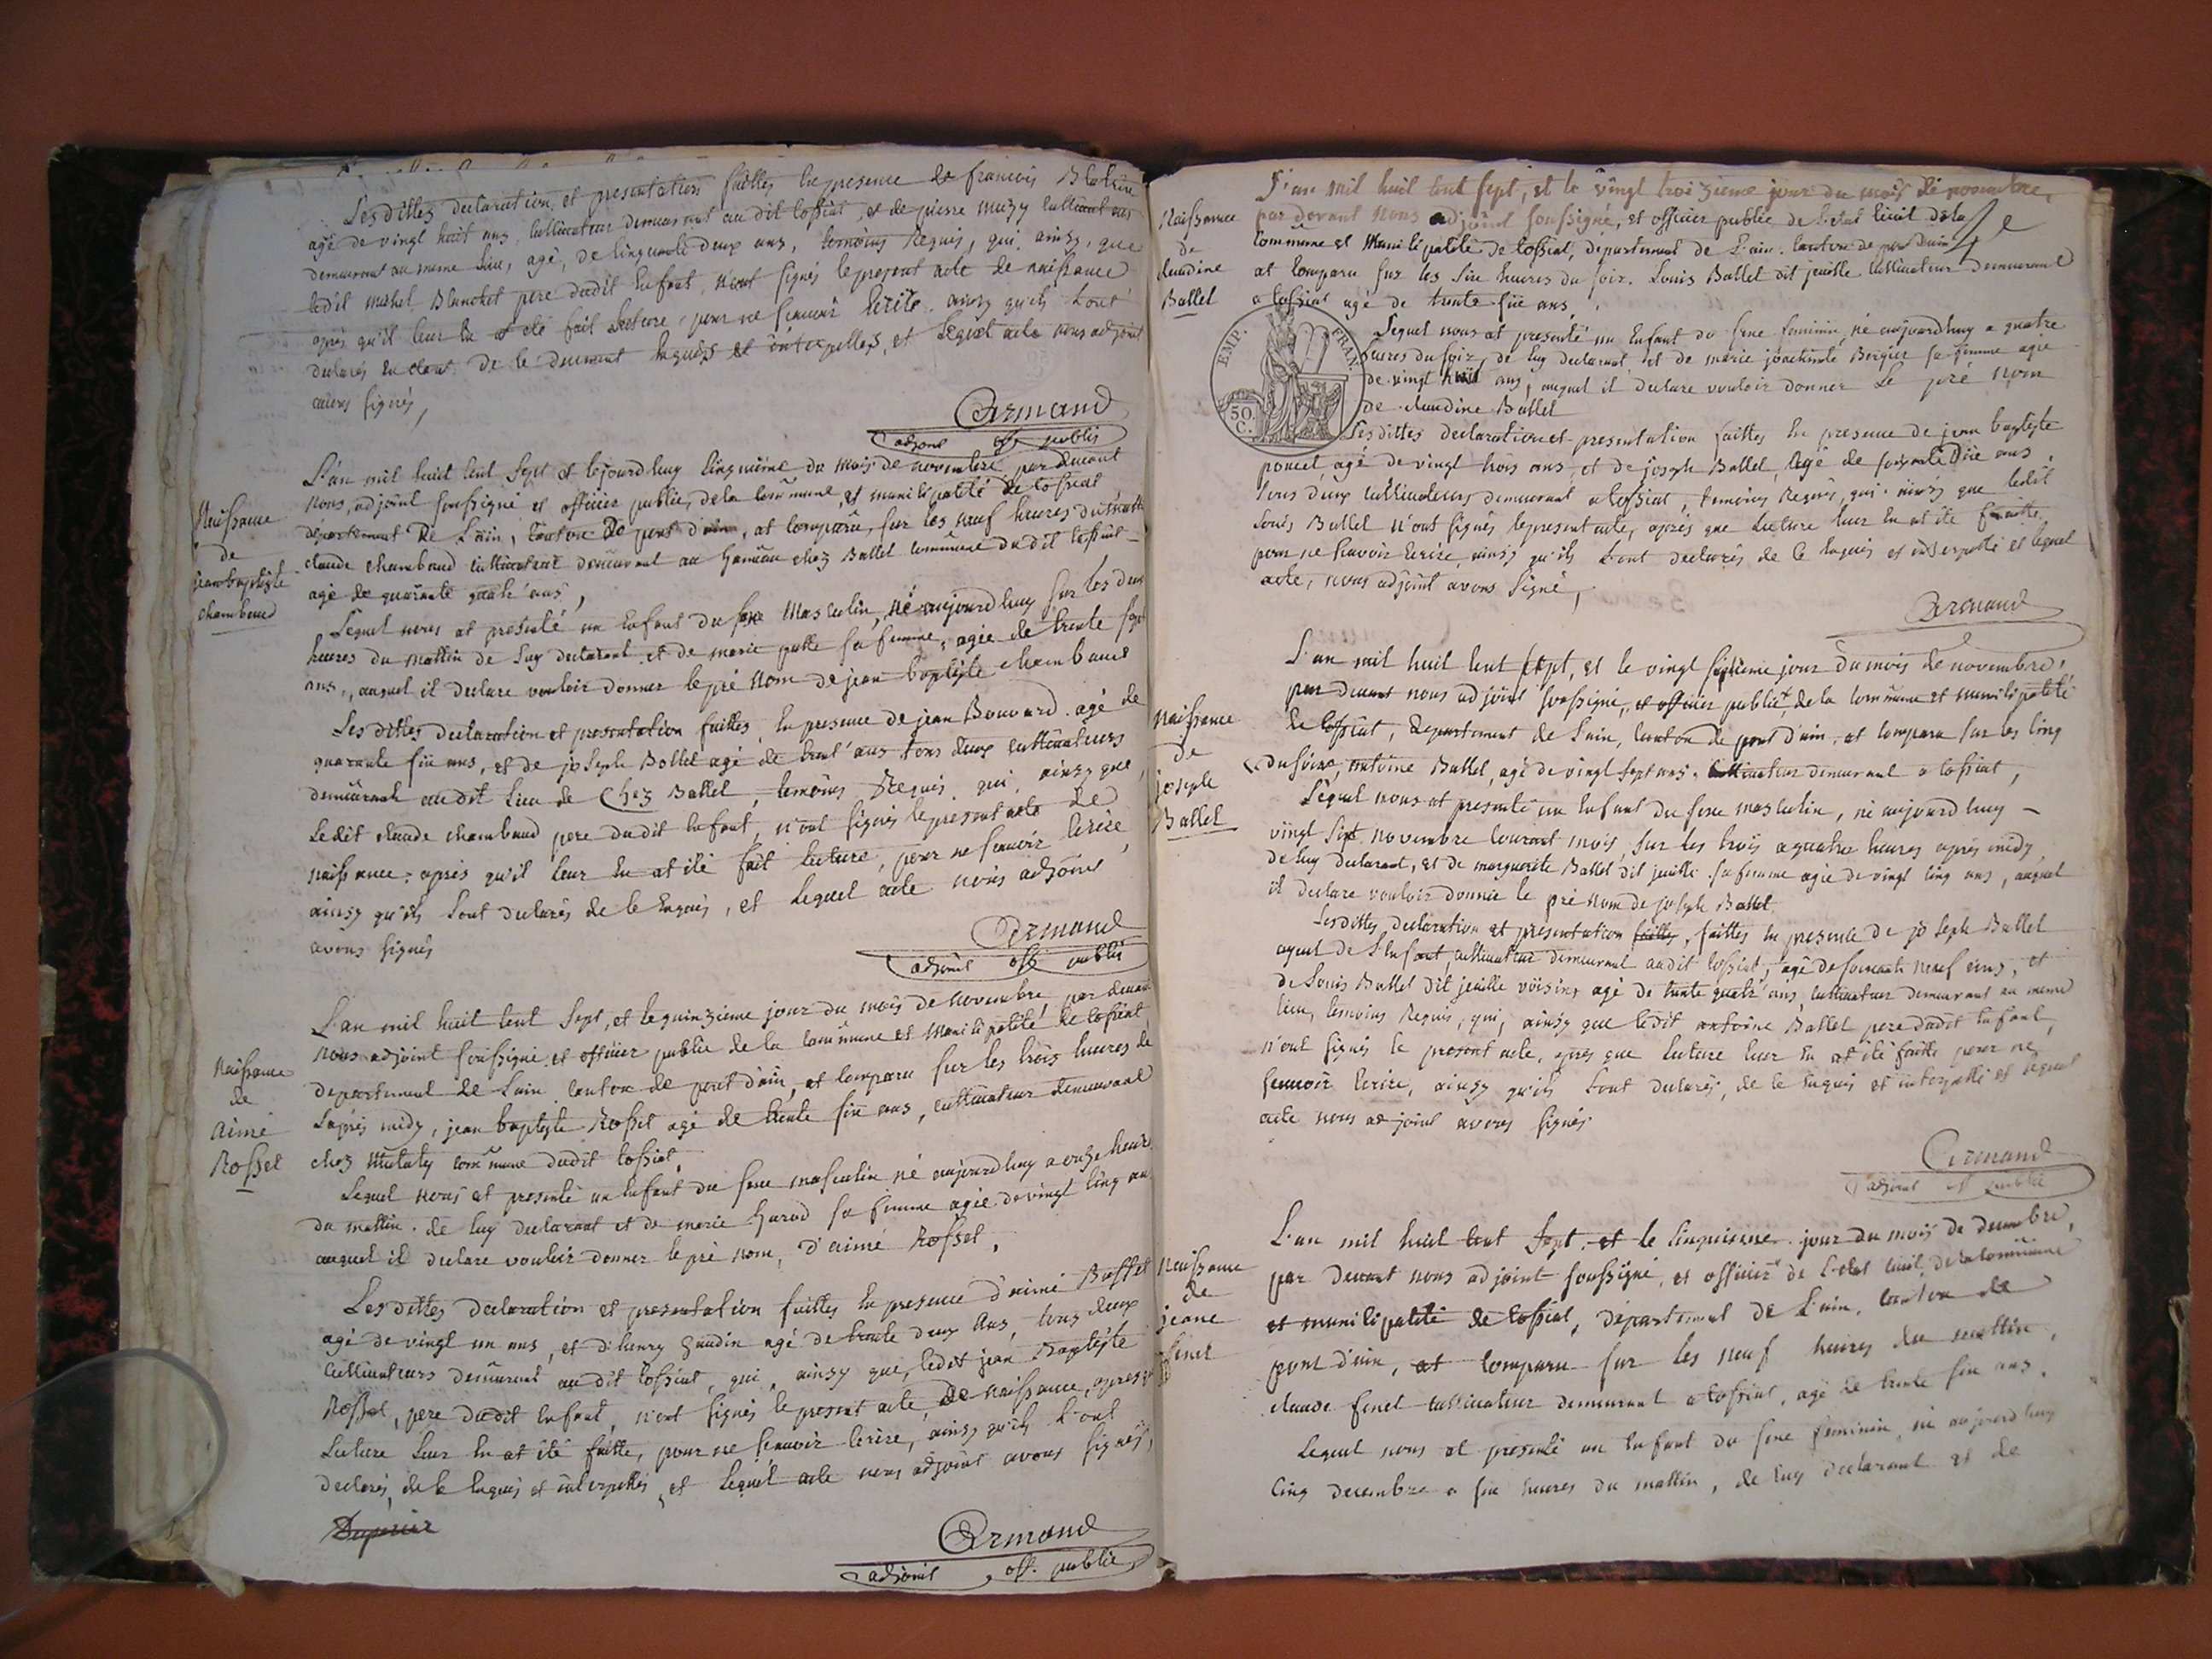 Les dittes declaration, et presentation faittes en presence de francois
agé de vingt huit ans, cultivateur demeurant au dit tossiat, et de pierre muzy cultivateur
demeurant au meme lieu, agé, de cinquante deux ans, temoins Requis, qui, ainsy, que
ledit michel Blanchet pere dudit Enfant, n'ont signés le present acte de naissance
après qu'il leur En at été fait lecture, pour ne scavoir Ecrire, ainsy qu'ils L'ont
declarés de le Enquis et interpellés, et Lequel acte nous adjoint
avons signés,
Armand
adjoint off publiq
Naissance
de
jean baptiste
chambaud
L'an mil huit cent sept et lejourd'huy cinquième du mois de novembre par devant
nous, adjoint soussigné et officier public, de la commune, et municipalité de tossiat
département de L'ain, canton de pont d'ain, at comparû, sur les neuf heures du matin
claude chambaud cultivateur demeurant au hameau chez Ballet commune du dit tossiat
agé de quarante quatr'ans,
Lequel nous at presenté un Enfant du sexe masculin, né aujourd'huy sur les deux
heures du mattin de Luy declarant et de marie sa femme, agée de trente sept
ans, auquel il declare vouloir donner le pré nom de jean baptiste chambaud
Les dittes declaration et presentation faittes, En presence de jean Bouvard agé de
quarante six ans, et de joseph Ballet agé de trent'ans tous deux cultivateurs
demeurant audit Lieu de Chez Ballet, temoins Requis, qui, ainsy que,
Ledit claude chambaud pere dudit Enfant, n'ont signés le present acte de
naissance, après qu'il leur En at été fait lecture, pour ne scavoir Ecrire,
ainsy qu'ils L'ont declarés de le Enquis, et Lequel acte nous adjoint
avons signés
Armand
adjoint off publiq
Naissance
de
aimé
Rosset
L'an mil huit cent sept, et le quinzieme jour du mois de novembre, par devant
nous adjoint soussigné et officier public de la commune et municipalité de tossiat
departement de L'ain canton de pont d'ain, at comparu sur les trois heures de
L'après midy, jean baptiste Rosset agé de trente six ans, cultivateur demeurant
chez commune dudit tossiat,
Lequel nous at presenté un Enfant du sexe masculin né aujourd'huy a onze heures
du mattin de Luy declarant et de marie sa femme agée de vingt cinq ans
auquel il declare vouloir donner le pré nom, d'aimé Rosset,
Les dittes declaration et presentation faittes En presence d'aimé
agé de vingt un ans, et d'henry gaudin agé de trente deux ans, tous deux
cultivateurs demeurant au dit tossiat, qui, ainsy que, ledit jean Baptiste
Rosset, pere dudit Enfant, n'ont signés le present acte, de naissance, après que
Lecture Leur En at été faitte, pour ne scavoir Ecrire, ainsy qu'ils L'ont
declarés, de le Enquis et interpellés, et Lequel acte nous adjoint avons signés,
Armand
adjoint off. public
Naissance
de
claudine
Ballet
L'an mil huit cent sept, et le vingt troisieme jour du mois de novembre,
par devant nous adjoint soussigné, et officier public de L'etat civil de la
commune et municipalité de tossiat, département de L'ain, canton de pont d'ain
at comparu sur les six heures du soir, Louis Ballet dit jeuille cultivateur demeurant
a tossiat agé de trente six ans,
EMP. FRAN.
50.
C.
Lequel nous at presenté un Enfant du sexe feminin, né aujourd'huy a quatre
heures du soir, de Luy declarant et de marie Bergier sa femme agée
de vingt huit ans, auquel il declare vouloir donner Le pré nom
de claudine Ballet
Les dittes declaration et presentation faittes En presence de jean baptiste
poncet, agé de vingt trois ans, et de joseph Ballet, agé de soixante ans,
tous deux cultivateurs demeurant a tossiat, temoins Requis, qui, ainsy que ledit
Louis Ballet n'ont signés le present acte, après que Lecture leur En at été faitte
pour ne scavoir Ecrire, ainsy qu'ils L'ont declarés de le Enquis et interpellé et lequel
acte, nous adjoint avons signé,
Armand
Naissance
de
joseph
Ballet
L'an mil huit cent sept, et le vingt septieme jour du mois de novembre,
par devant nous adjoint soussigné, et officier public, de la commune et municipalité
de tossiat, departement de L'ain, canton de pont d'ain, at comparu sur les cinq
du soir, antoine Ballet, agé de vingt sept ans, cultivateur demeurant a tossiat,
Lequel nous at presenté un Enfant du sexe masculin, né aujourd'huy
vingt sept novembre courant mois, sur les trois a quatre heures après midy
de Luy declarant, et de marguerite Ballet dit jeuille sa femme agée de vingt cinq ans, auquel
il declare vouloir donner le pré nom de joseph Ballet
Les dittes declaration et presentation faittes, faittes En presence de joseph Ballet
ayeul de L'enfant, cultivateur demeurant audit tossiat, agé de soixante neuf ans, et
de Louis Ballet dit jeuille voisin, agé de trente quatr'ans, cultivateur demeurant au meme
lieu, temoins Requis, qui, ainsy que ledit antoine Ballet pere dudit Enfant,
n'ont signés le present acte, après que Lecture leur En at été faitte pour ne
scavoir Ecrire, ainsy qu'ils L'ont declarés, de le Enquis et interpellé et lequel
acte nous adjoint avons signés
Armand
adjoint off public
Naissance
de
jeane
finet
L'an mil huit cent sept, et le cinquieme jour du mois de decembre,
par devant nous adjoint soussigné, et officier de L'etat civil, de la commune
et municipalité de tossiat, département de L'ain, canton de
pont d'ain, at comparu sur les neuf heures du mattin,
claude finet cultivateur demeurant a tossiat, agé de trente six ans,
Lequel nous at presenté un Enfant du sexe feminin, né aujourd'huy
cinq decembre a six heures du mattin, de Luy declarant et de